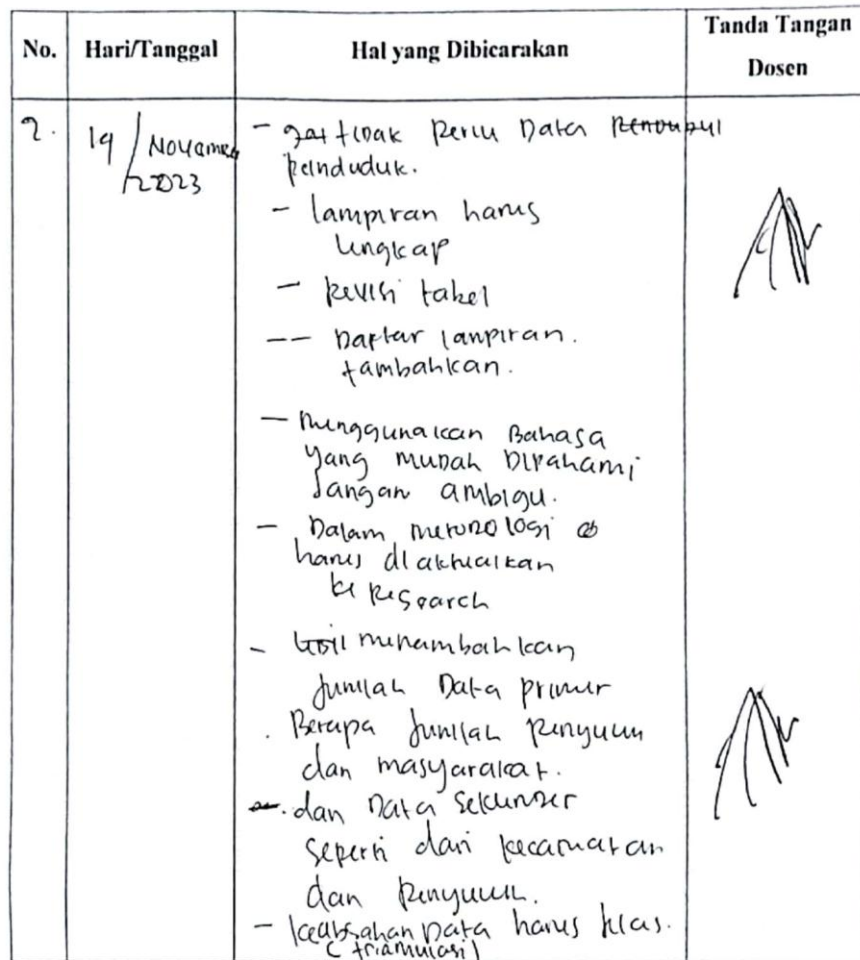 No. Hari/Tanggal Hal yang Dibicarakan Tanda Tangan Dosen
2. 19 / November 2023
- tidak perlu Data
penduduk.
- lampiran harus
lengkap
- Revisi tabel
-- Daftar lampiran.
tambahkan.
- menggunakan Bahasa
yang mudah Dipahami
Jangan ambigu.
- Dalam metodologi
harus diaktualkan
ke Research
- menambahkan
Jumlah Data primer
. Berapa Jumlah Penyuluh
dan masyarakat.
. dan Data Sekunder
seperti dari kecamatan
dan Penyuluh.
- keabsahan Data harus jelas.
( triangulasi)